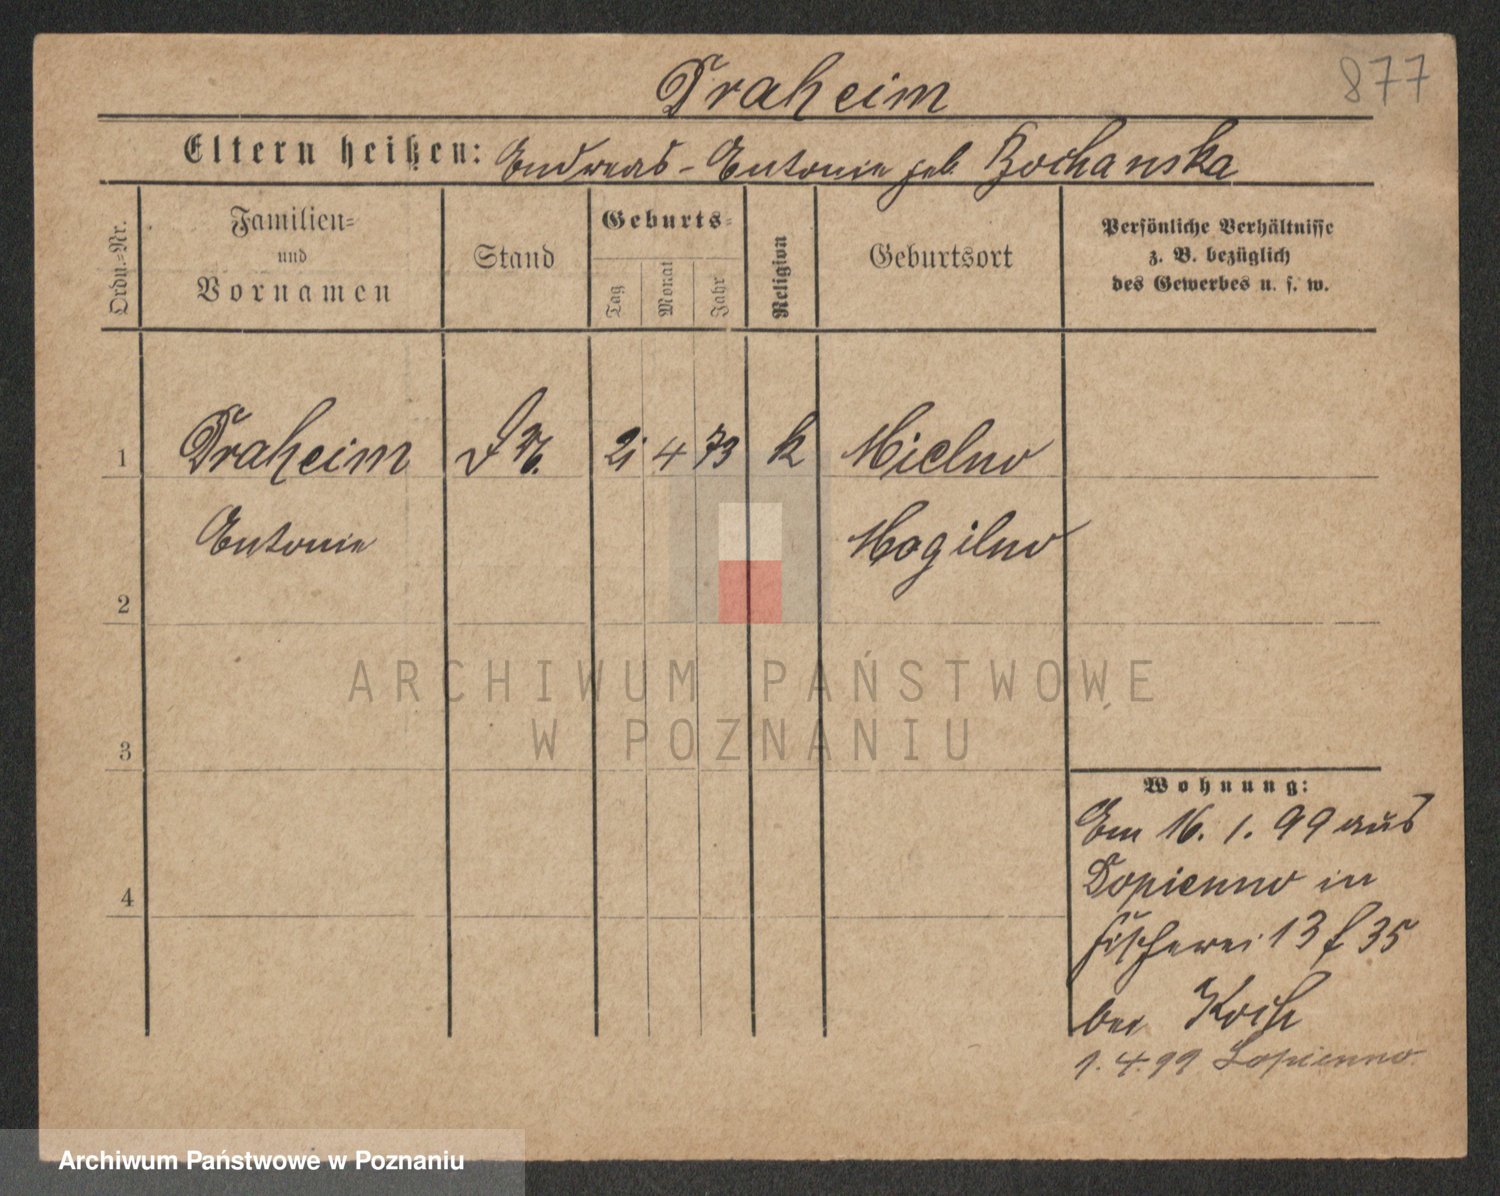 877
Draheim
Eltern heißen: Andreas - Antonie geb. Bochanska
Ordn.-Nr.
Familien- und Vornamen
Stand
Geburts-
Tag
Monat
Jahr
Religion
Geburtsort
Persönliche Verhältnisse
z. B. bezüglich
des Gewerbes u. s. w.
1 Draheim 4 73 k Mielno
Antonie Mogilno
2
3
4
ARCHIWUM PAŃSTWOWE
W POZNANIU
Wohnung:
Am 16. 1. 99 aus
Lopienno in
Fischerei 13 f 35
bei Koch
1.4.99 Lopienno
Archiwum Państwowe w Poznaniu